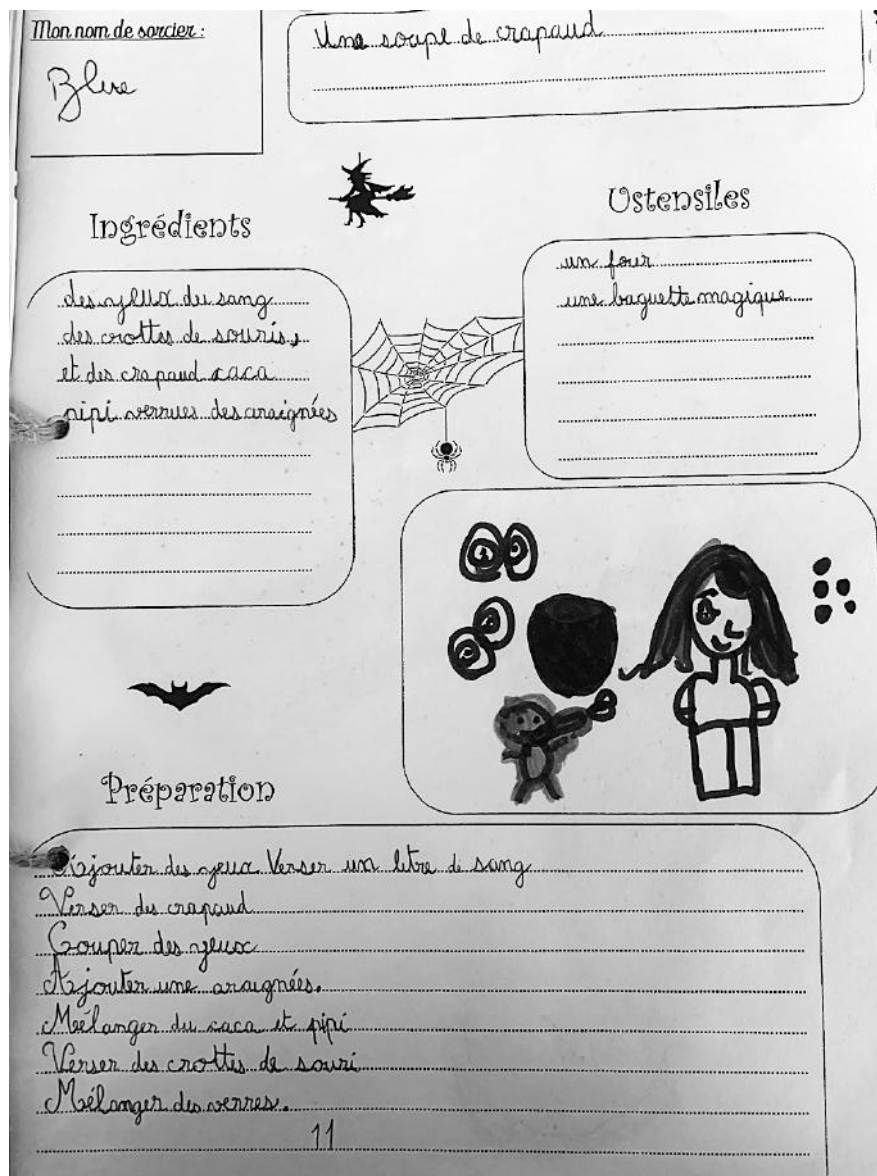 Mon nom de sorcier :
Blue
Une soupe de crapaud
Ingrédients
des yeux du sang
des crottes de souris,
et des crapaud caca
pipi verrues des araignées
Ustensiles
un four
une baguette magique
Préparation
Ajouter des yeux Verser un litre de sang
Verser du crapaud
Couper des yeux
Ajouter une araignées.
Mélanger du caca et pipi
Verser des crottes de souri
Mélanger des verres.
11